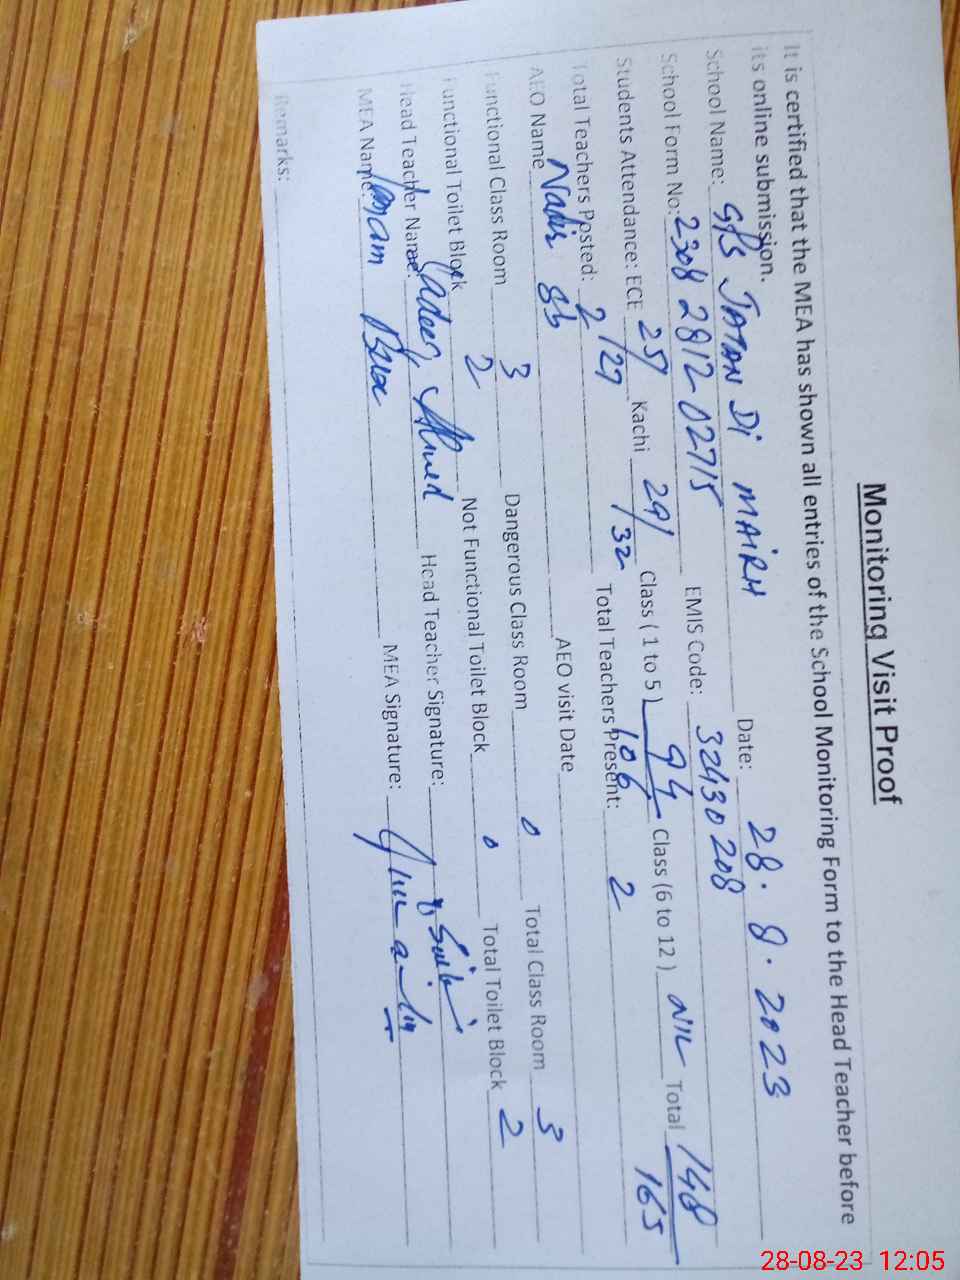 Monitoring Visit Proof
It is certified that the MEA has shown all entries of the School Monitoring Form to the Head Teacher before
its online submission.
School Name: GPS JATAN Di MAIRH Date: 28.8.2023
School Form No: 2308 2812 02715 EMIS Code: 32430208
Students Attendance: ECE 25/27 Kachi 29/32 Class ( 1 to 5 ) 94/106 Class (6 to 12 ) NIL Total 148/165
Total Teachers Posted: 2 Total Teachers Present: 2
AEO Name Nadir Sb AEO visit Date
Functional Class Room 3 Dangerous Class Room 0 Total Class Room 3
Functional Toilet Block 2 Not Functional Toilet Block 0 Total Toilet Block 2
Head Teacher Name: Ahmed Head Teacher Signature:
MEA Name: MEA Signature:
Remarks:
28-08-23 12:05